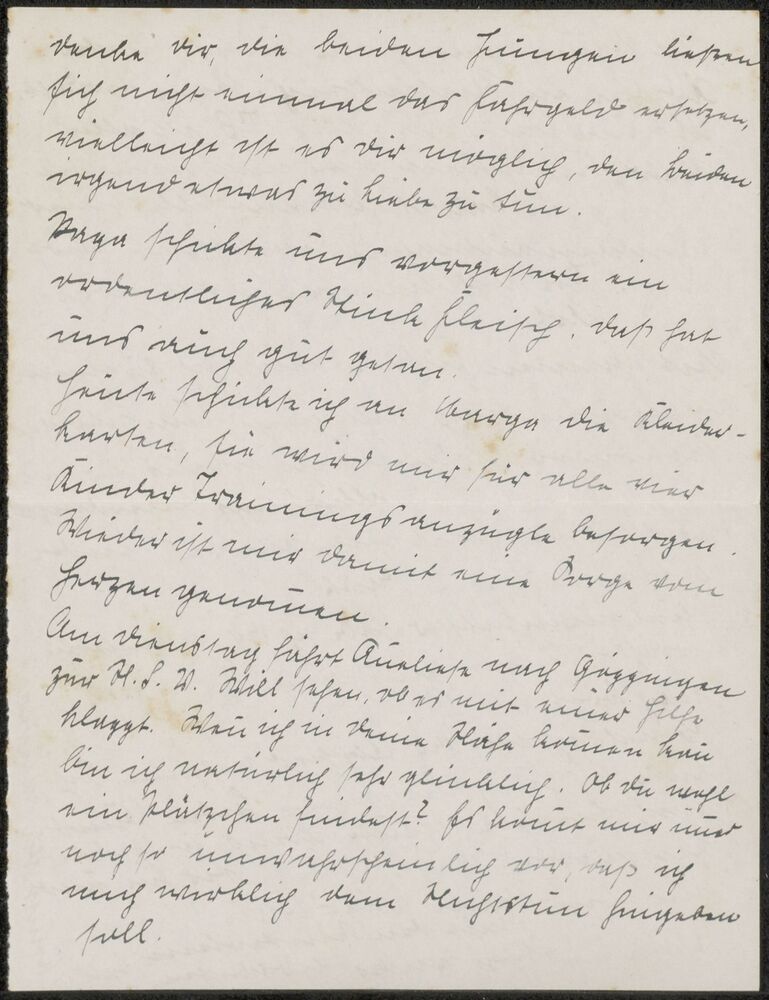 denke dir, die beiden Jungen ließen
sich nicht einmal das Fahrgeld ersetzen,
vielleicht ist es dir möglich, den beiden
irgend etwas zu Liebe zu tun.
Papa schickte uns vorgestern ein
ordentliches Stück Fleisch. daß hat
uns auch gut getan.
Heute schickte ich an Marga die Kleider-
karten, sie wird mir für alle vier
Kinder Trainingsanzügle besorgen.
Wieder ist mir damit eine Sorge vom
Herzen genommen.
Am dienstag fährt Anneliese nach Göppingen
zur N.S.V. Will sehen, ob es mit einer Hilfe
klappt. Wenn ich in deine Nähe kommen kann
bin ich natürlich sehr glücklich. Ob du wohl
ein Plätzchen findest? Es kommt mir immer
noch so unwahrscheinlich vor, daß ich
mich wirklich dem Nichtstun hingeben
soll.